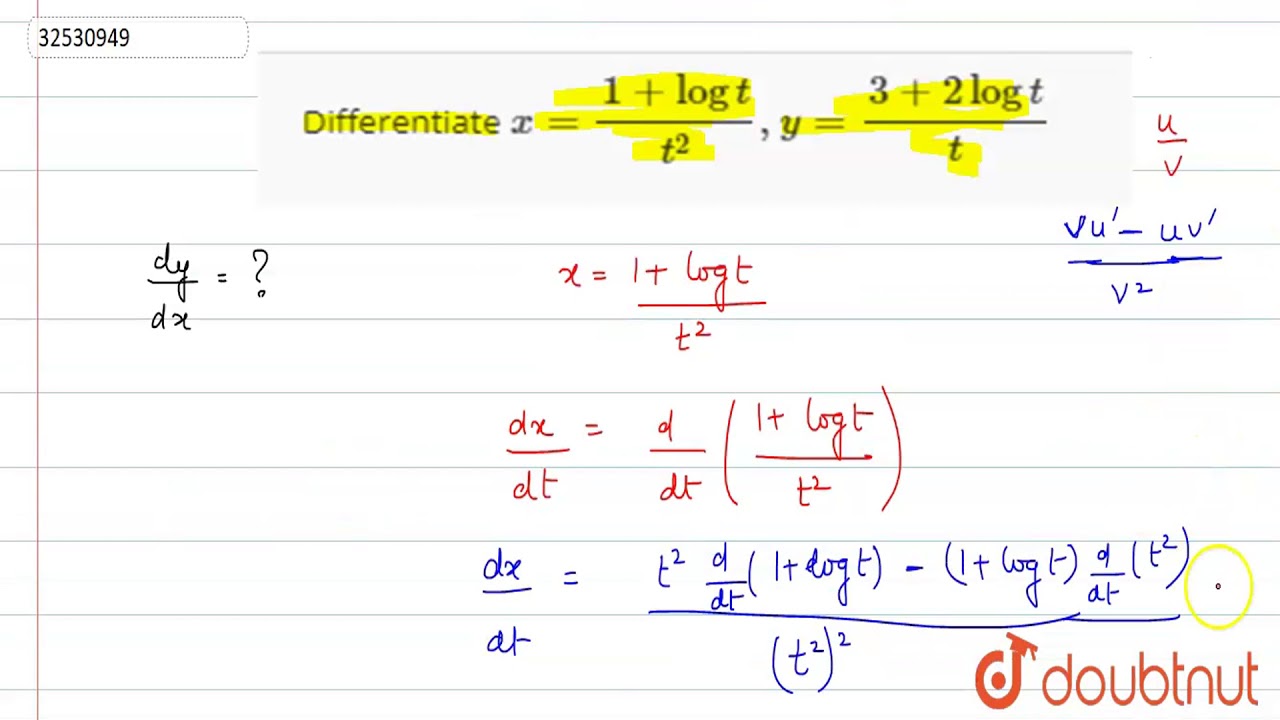 32530949
Differentiate x = (1 + log t)/t², y = (3 + 2 log t)/t
u/v
(vu′ − uv′)/v²
dy/dx = ?
x = (1 + log t)/t²
dx/dt = d/dt ((1 + log t)/t²)
dx/dt = (t² d/dt (1 + log t) − (1 + log t) d/dt (t²))/(t²)²
doubtnut